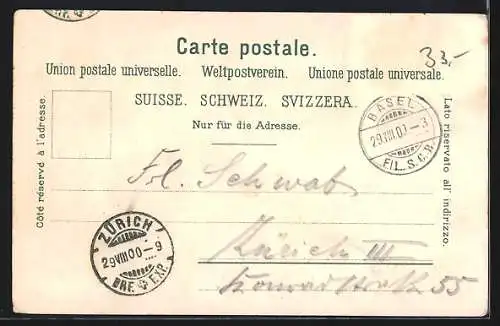 Carte postale.
33,-
Union postale universelle. Weltpostverein. Unione postale universale.
SUISSE. SCHWEIZ. SVIZZERA.
Nur für die Adresse.
Côté réservé à l'adresse.
Lato riservato all' indirizzo.
BASEL
29.VIII.00 – 3
FIL. S.C.B.
Frl. Schwab
Zürich III
55
ZÜRICH
29.VIII.00 – 9
BRF. EXP.